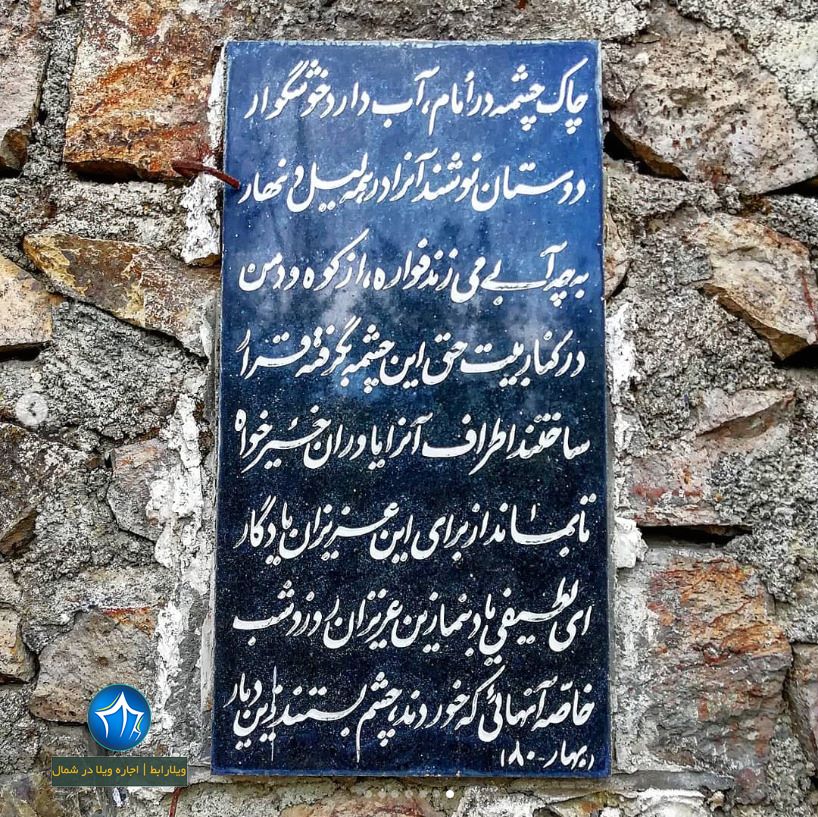 چاک چشمه در اُمام، آب دارد خوشگوار
دوستان نوشند آنرا در همه لیل و نهار
به چه آبی می زند فواره، از کوه و دمن
در کنار بیت حق این چشمه بگرفته قرار
ساختند اطراف آنرا یاوران خیرخواه
تا بماند از برای این عزیزان یادگار
ای لطیفی یاد بنما زین عزیزان روز و شب
خاصّه آنهائی که خوردند، چشم بستند این دیار
(بهار-۸۰)
ویلارابط | اجاره ویلا در شمال